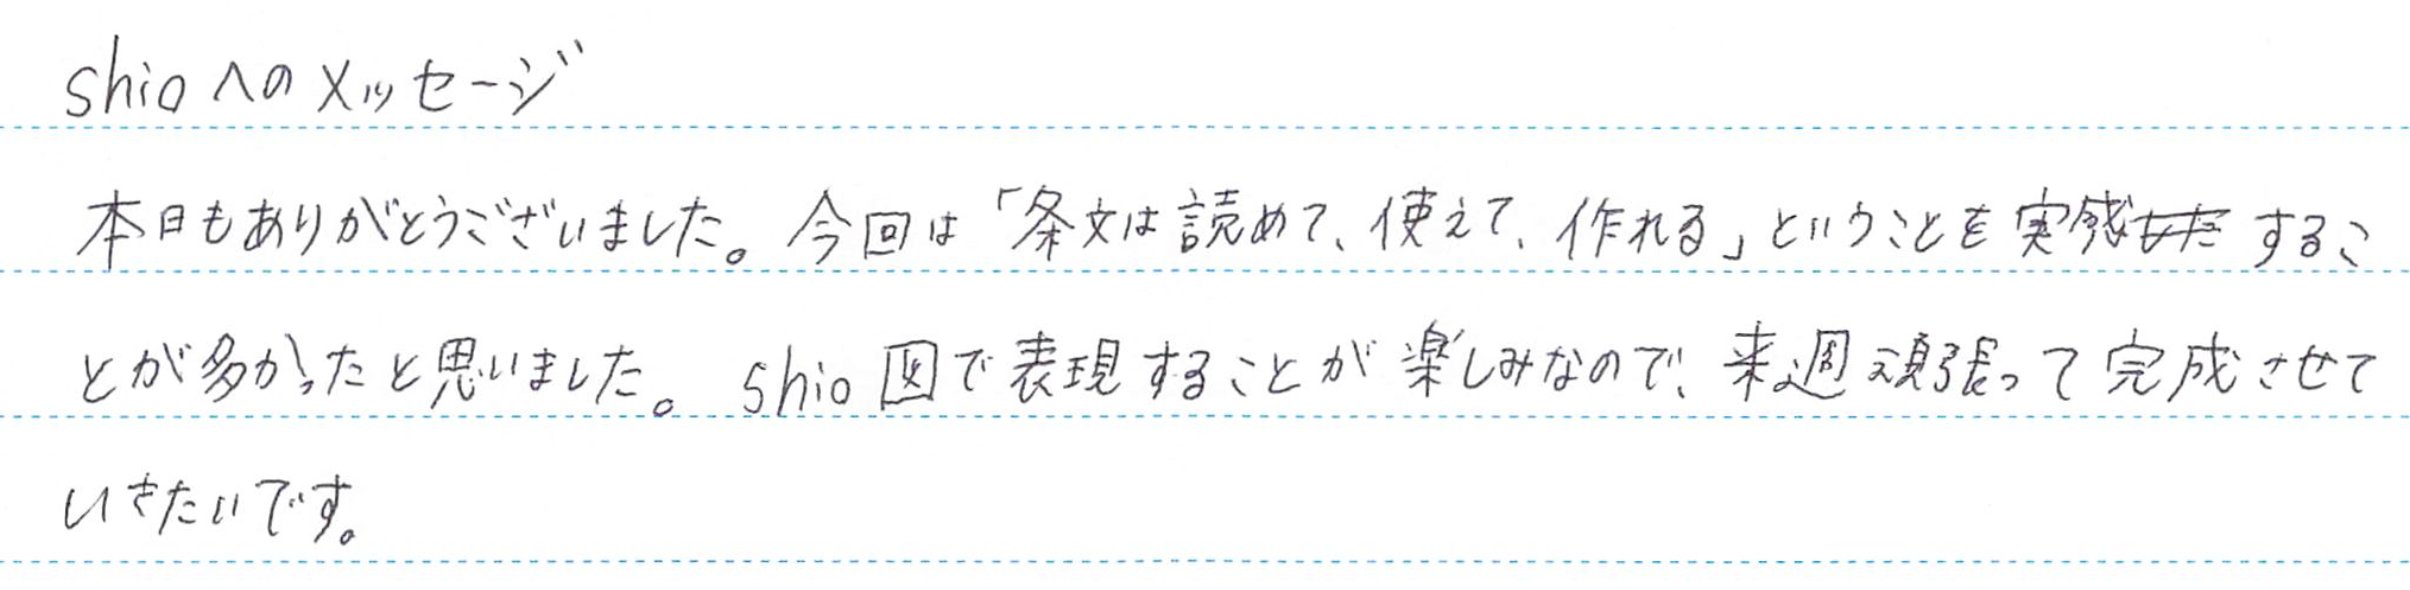 shioへのメッセージ
本日もありがとうございました。今回は「条文は読めて、使えて、作れる」ということを実感するこ
とが多かったと思いました。shio図で表現することが楽しみなので、来週頑張って完成させて
いきたいです。